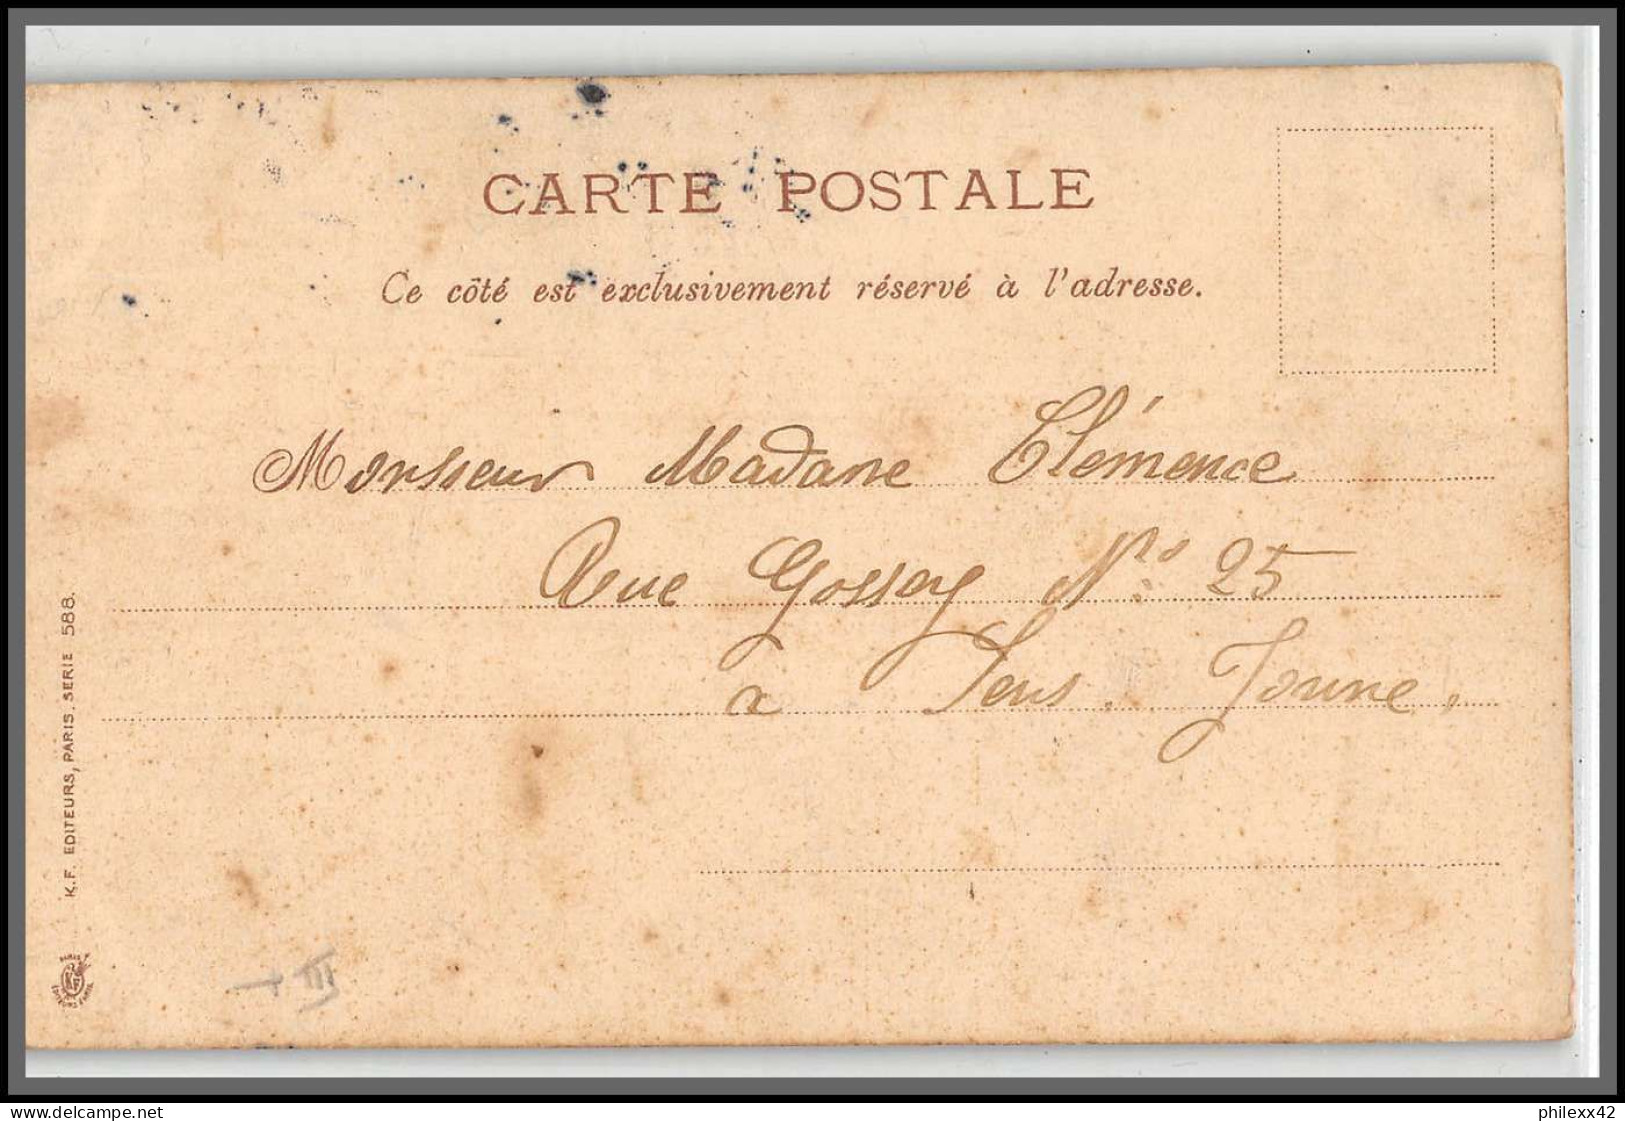 CARTE POSTALE
Ce côté est exclusivement réservé à l'adresse.
Monsieur Madame Clémence
Rue Gossey No 25
à Sens. Yonne,
K.F. EDITEURS, PARIS. SERIE 588.
PARIS
KF
III
delcampe.net
philexx42